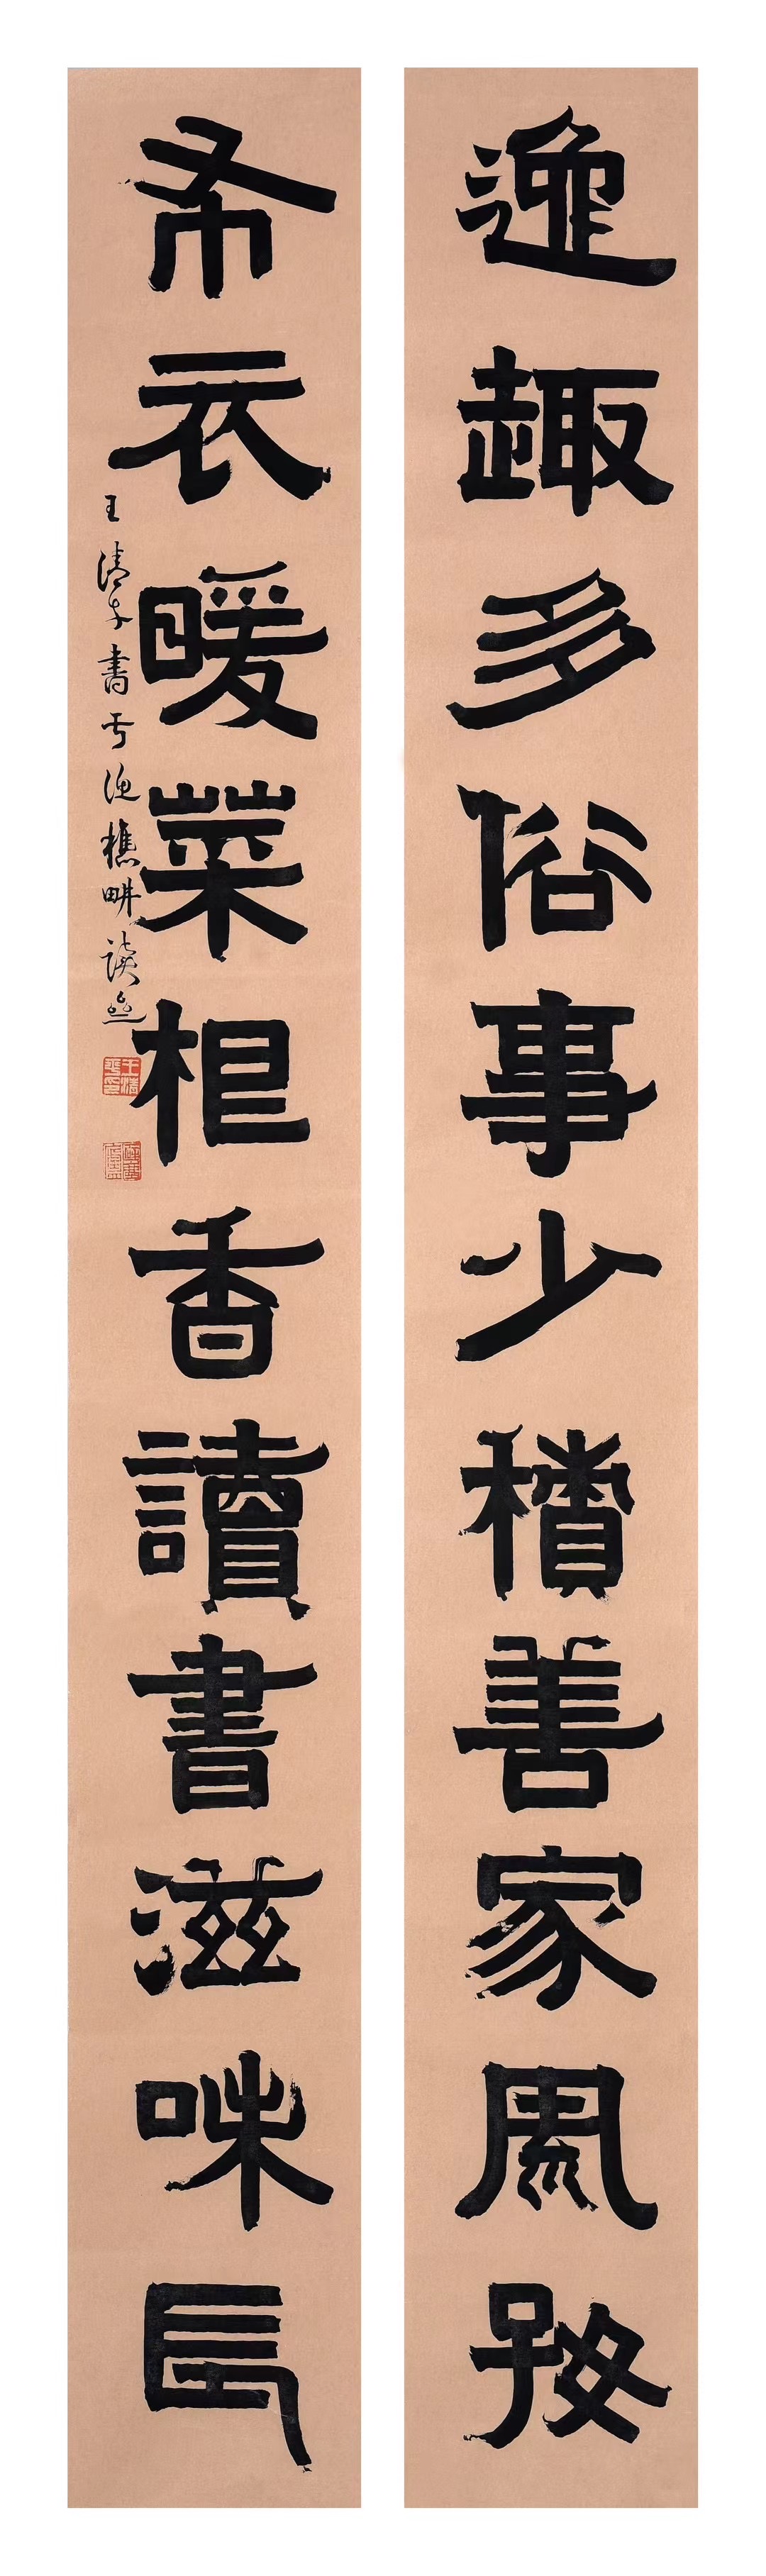 逸趣多俗事少積善家風好
布衣暖菜根香讀書滋味長
王清平書于漁樵畊讀